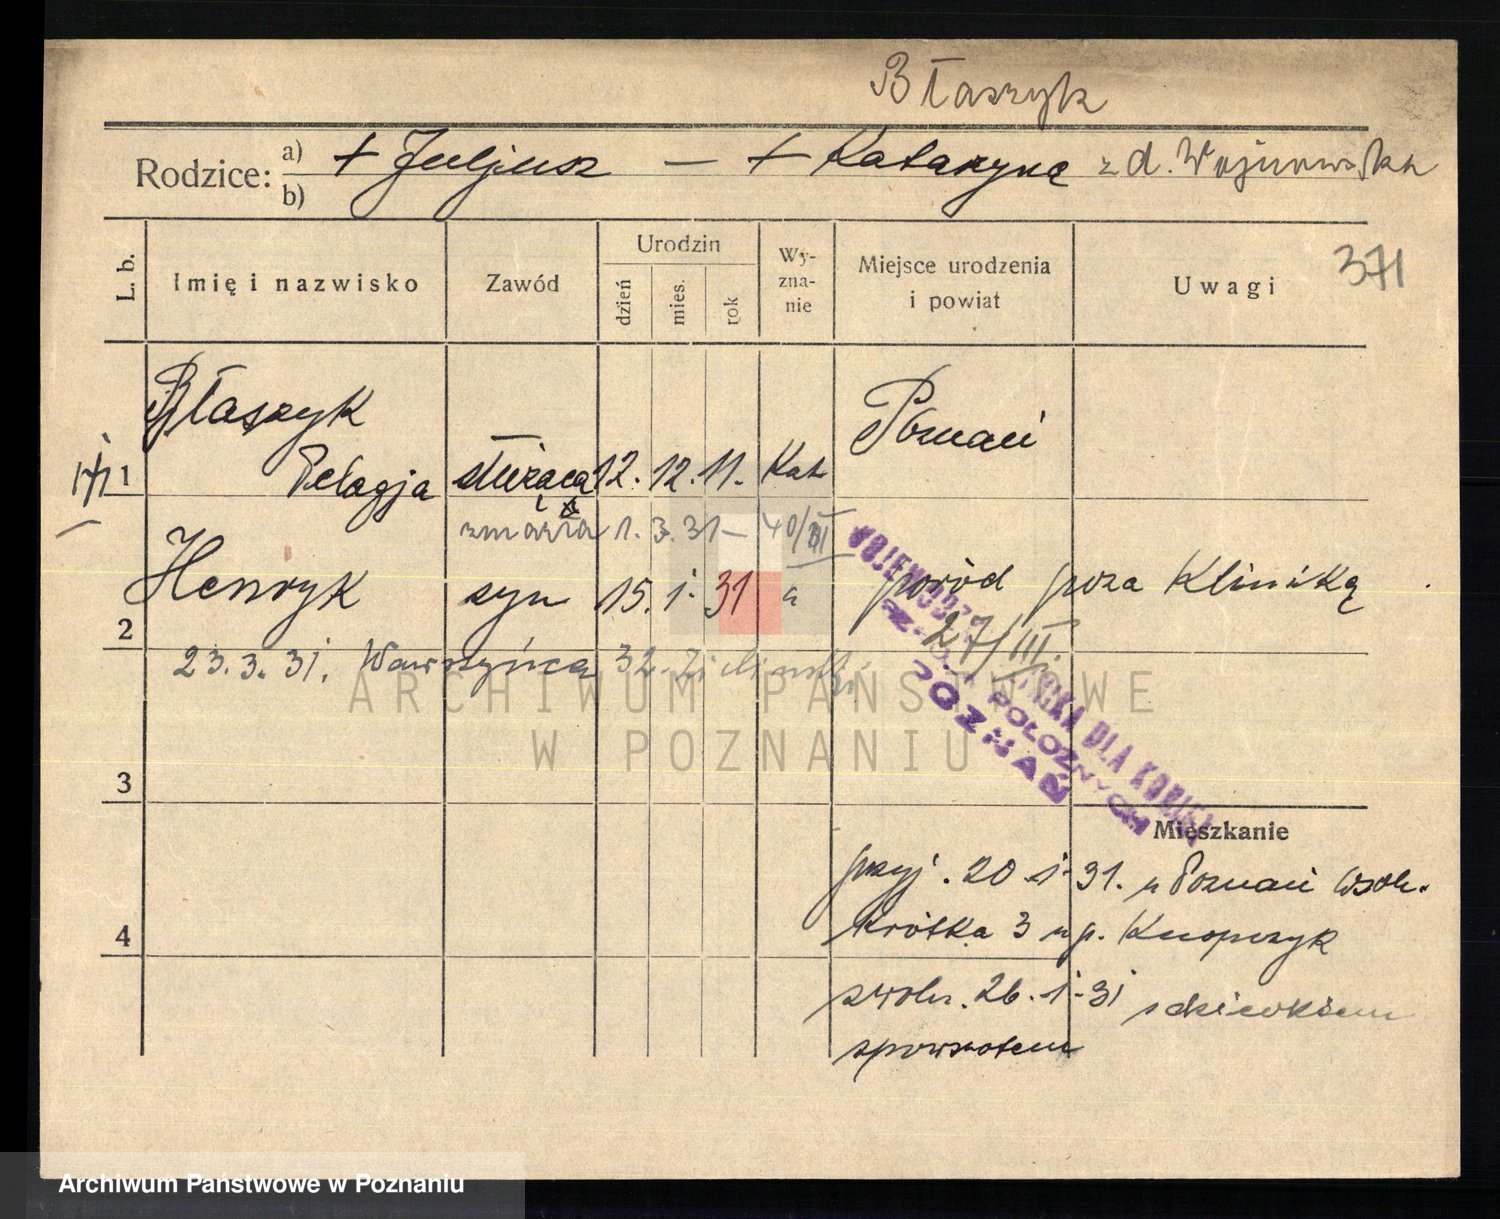 Błaszyk
Rodzice: a) + Juljusz — + Katarzyna z d. Wojnowska
b)
371
L. b. Imię i nazwisko Zawód Urodzin Wy-zna-nie Miejsce urodzenia i powiat Uwagi
dzień mies. rok
Błaszyk Poznań
1 Pelagja służąca 12. 12. 11. Kat
zmarła 1. 3. 31 — 40/III
2 Henryk syn 15. 1. 31 poród poza Kliniką
27/III.
23.3.31. Wawrzyńca 32
WOJEWÓDZKA
KLINIKA DLA KOBIET
POŁOŻNYCH
POZNAŃ
3
Mieszkanie
przyj. 20.1.31. Poznań
4 krótka 3 Knopczyk
zwoln. 26.1.31 z dzieckiem
zpowrotem
ARCHIWUM PAŃSTWOWE
W POZNANIU
Archiwum Państwowe w Poznaniu